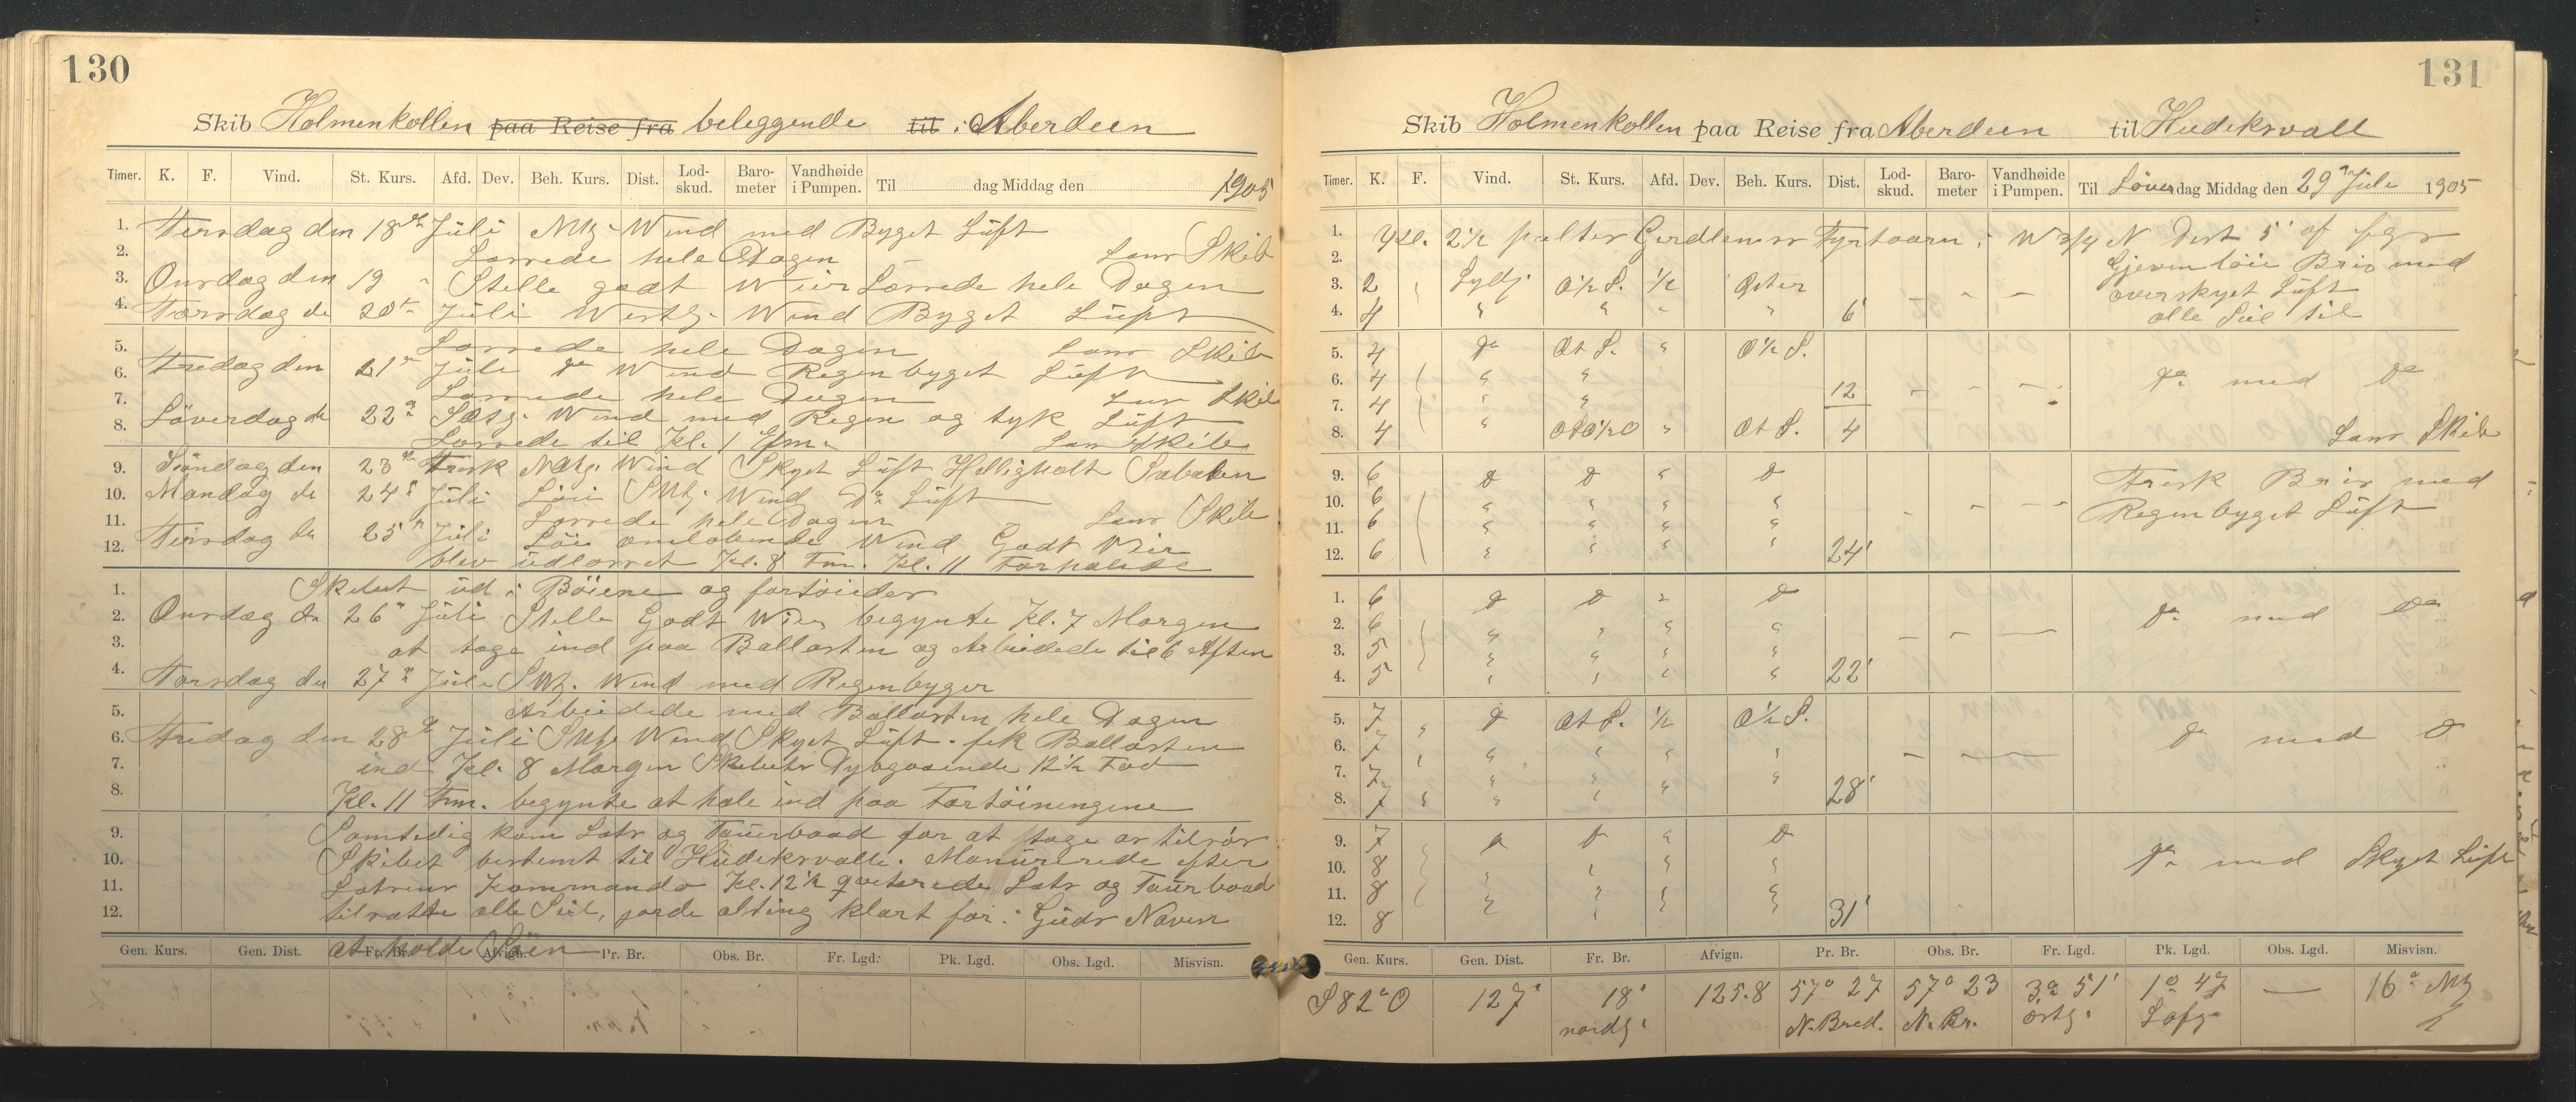 130
Skib Holmenkollen paa Reise fra beleggende til i Aberdeen
Timer. K. F. Vind. St. Kurs. Afd. Dev. Beh. Kurs. Dist. Lod-skud. Baro-meter Vandhøide i Pumpen. Til dag Middag den 1905
1. Tirsdag den 18de Juli NVtg. Wind med Byget Lüft
2. Lossede hele Dagen Lans Skib
3. Onsdag den 19 " Stelle godt Weir Lossede hele Dagen
4. Torsdag de 20de Juli Westlg. Wind Byget Lüft
5. Lossede hele Dagen Lans Skib
6. Fredag den 21de Juli do Wind Regenbyget Lüft
7. Lossede hele Dagen Lans Skib
8. Löverdag de 22de Wind med Regen og tyk Lüft
Lossede til Kl. 1 Efm. Lans Skib
9. Söndag den 23de Frisk Wind Skyet Lüft Helligholt Sabaten
10. Mandag de 24de Juli Löie SVtg. Wind Do Lüft
11. Lossede hele Dagen Lans Skib
12. Tirsdag de 25de Juli Löie omlobende Wind Godt Veir
blev udlosset Kl. 8 Fm. Kl. 11 Forhalede
1. Skibet ud i Böiene og fortöiedes
2. Onsdag de 26de Juli Stelle Godt Wier begynte Kl. 7 Morgen
3. at tage ind paa Ballasten og Arbeidede til 6 Aften
4. Torsdag den 27de Juli SVtg. Wind med Regenbyger
5. Arbeidede med Ballasten hele Dagen
6. Fredag den 28de Juli SVtg. Wind Skyet Lüft. fek Ballasten
7. ind Kl. 8 Morgen Skibets Dybgaaende 12½ Fod
8. Kl. 11 Fm. begynte at hale ind paa Fortöiningene
9. Samtedig kom Lots og Tauerbaad for at tage os tilsös
10. Skibet bestemt til Hüdeksvalle. Manürerede efter
11. Lotsens Kommando Kl. 12½ qveterede Lots og Tauerbaad
12. tilsatte alle Seil, gorde alting klart for i Güds Naven
at holde Söen
Gen. Kurs. Gen. Dist. Fr. Br. Afvign. Pr. Br. Obs. Br. Fr. Lgd. Pk. Lgd. Obs. Lgd. Misvisn.
131
Skib Holmenkollen paa Reise fra Aberdeen til Hüdeksvall
Timer. K. F. Vind. St. Kurs. Afd. Dev. Beh. Kurs. Dist. Lod-skud. Baro-meter Vandhøide i Pumpen. Til Löverdag Middag den 29de Juli 1905
1. Kl. 2½ peiltes Girdleness Fyrtaarn i W 3/4 N Dist 5' af
2. Gjevn löie Bris med
3. 2 Sydlj O½S. ½ Oster overskyet Lüft
4. 4 " " " " 6' alle Seil til
5. 4 do Ot S. " O½S.
6. 4 " " do med do
7. 4 " " 12
8. 4 " OSO½O " Ot S. 4 Lans Skib
9. 6 do do " do Frisk Bris med
10. 6 " " " " Regenbyget Lüft
11. 6 " " " "
12. 6 " " " " 24'
1. 6 do do " do do med do
2. 6 " " " "
3. 5 " " " "
4. 5 " " " " 22'
5. 7 do Ot S. ½ O½S.
6. 7 " " " " do med do
7. 7 " " " "
8. 7 " " " 28'
9. 7 do do " do do med Skyet Lüft
10. 8 " " " "
11. 8 " " " "
12. 8 " " 31'
Gen. Kurs. Gen. Dist. Fr. Br. Afvign. Pr. Br. Obs. Br. Fr. Lgd. Pk. Lgd. Obs. Lgd. Misvisn.
S 82° O 127' 18' 125.8 57° 27 57° 23 3° 51' 1° 47 — 16°
nordg. N. Bred. N. Br. ostg.